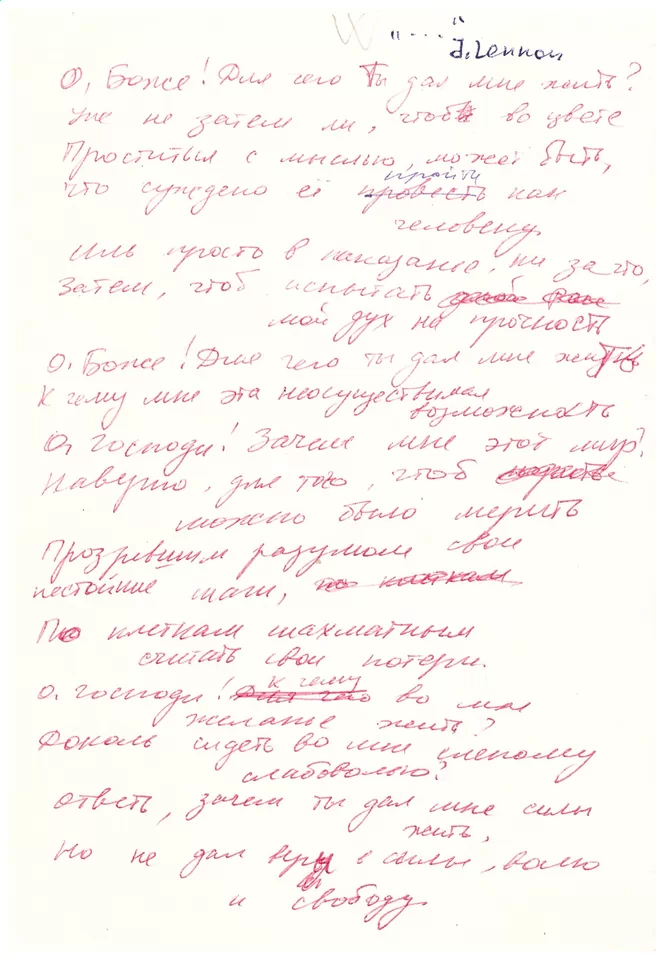 "...."
J. Lennon
О, Боже! Для чего Ты дал мне жить?
Уже не затем ли, чтоб во цвете
Проститься с мыслью, может быть,
пройти
что суждено ей провесть как
человеку.
Иль просто в наказание, ни за что,
Затем, чтоб испытать
мой дух на прочность
О, Боже! Для чего ты дал мне жизнь
К чему мне эта неосуществимая
возможность
О, Господи! Зачем мне этот мир?
Наверно, для того, чтоб
можно было мерить
Прозревшим разумом свои
нестойкие шаги, по клеткам
По клеткам шахматным
считать свои потери.
к чему
О, Господи! Для чего во мне
желанье жить?
Доколь сидеть во мне слепому
слабоволью?
Ответь, зачем ты дал мне силы
жить,
Но не дал веры в силы, волю
и свободу.